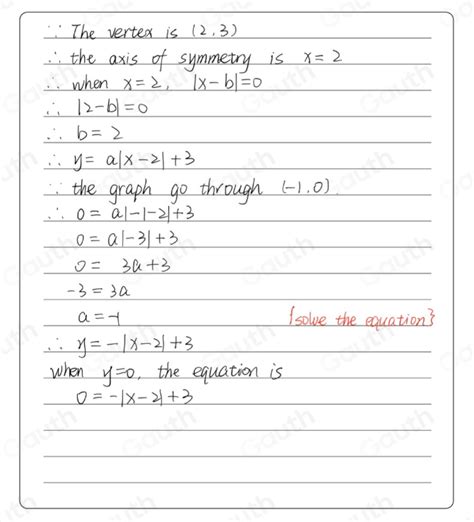 ∵ The vertex is (2,3)
∴ the axis of symmetry is x=2
∴ when x=2, |x-b|=0
∴ |2-b|=0
∴ b=2
∴ y= a|x-2|+3
∵ the graph go through (-1,0).
∴ 0= a|-1-2|+3
0= a|-3|+3
0= 3a+3
-3=3a
a=-1 {solve the equation}
∴ y=-|x-2|+3
when y=0, the equation is
0=-|x-2|+3